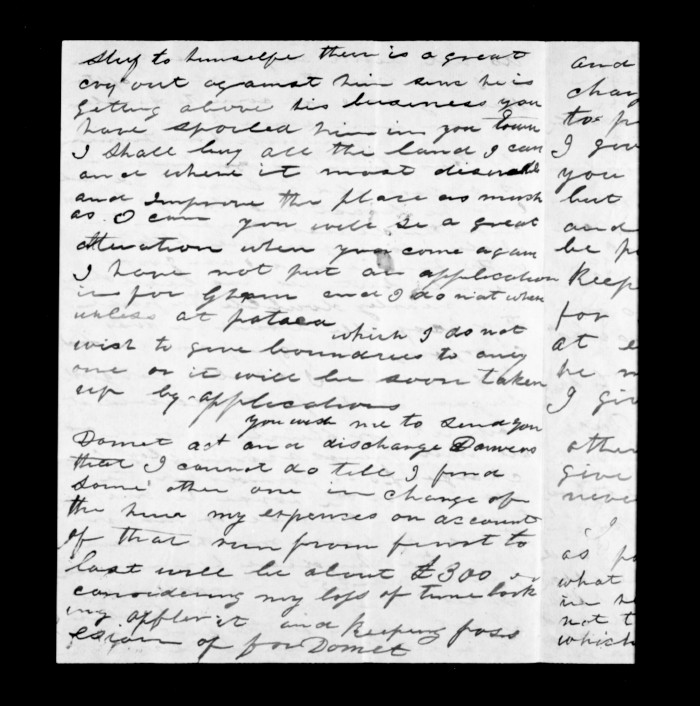 to himselfe there is a great
cry out against him sins he is
getting above his business you
have spoiled him in you town
I shall buy all the land I can
and where it most
and improve the place as much
as I can you will se a great
when you come again
I have not put an application
in for and I do
unless at pataea
which I do not
wish to give boundries to any
one or it will be soon taken
up by applications
you wish me to send you
Domet act and discharge
that I cannot do till I find
some other one in charge of
the my expences on account
of that run from furst to
last will be about £300
concidering my loss of time look
ing after it and keeping poss
esion of for Domet
and
you
but
and
be
keep
for
at
be
I
other
give
never
I
as
what
in
not
which